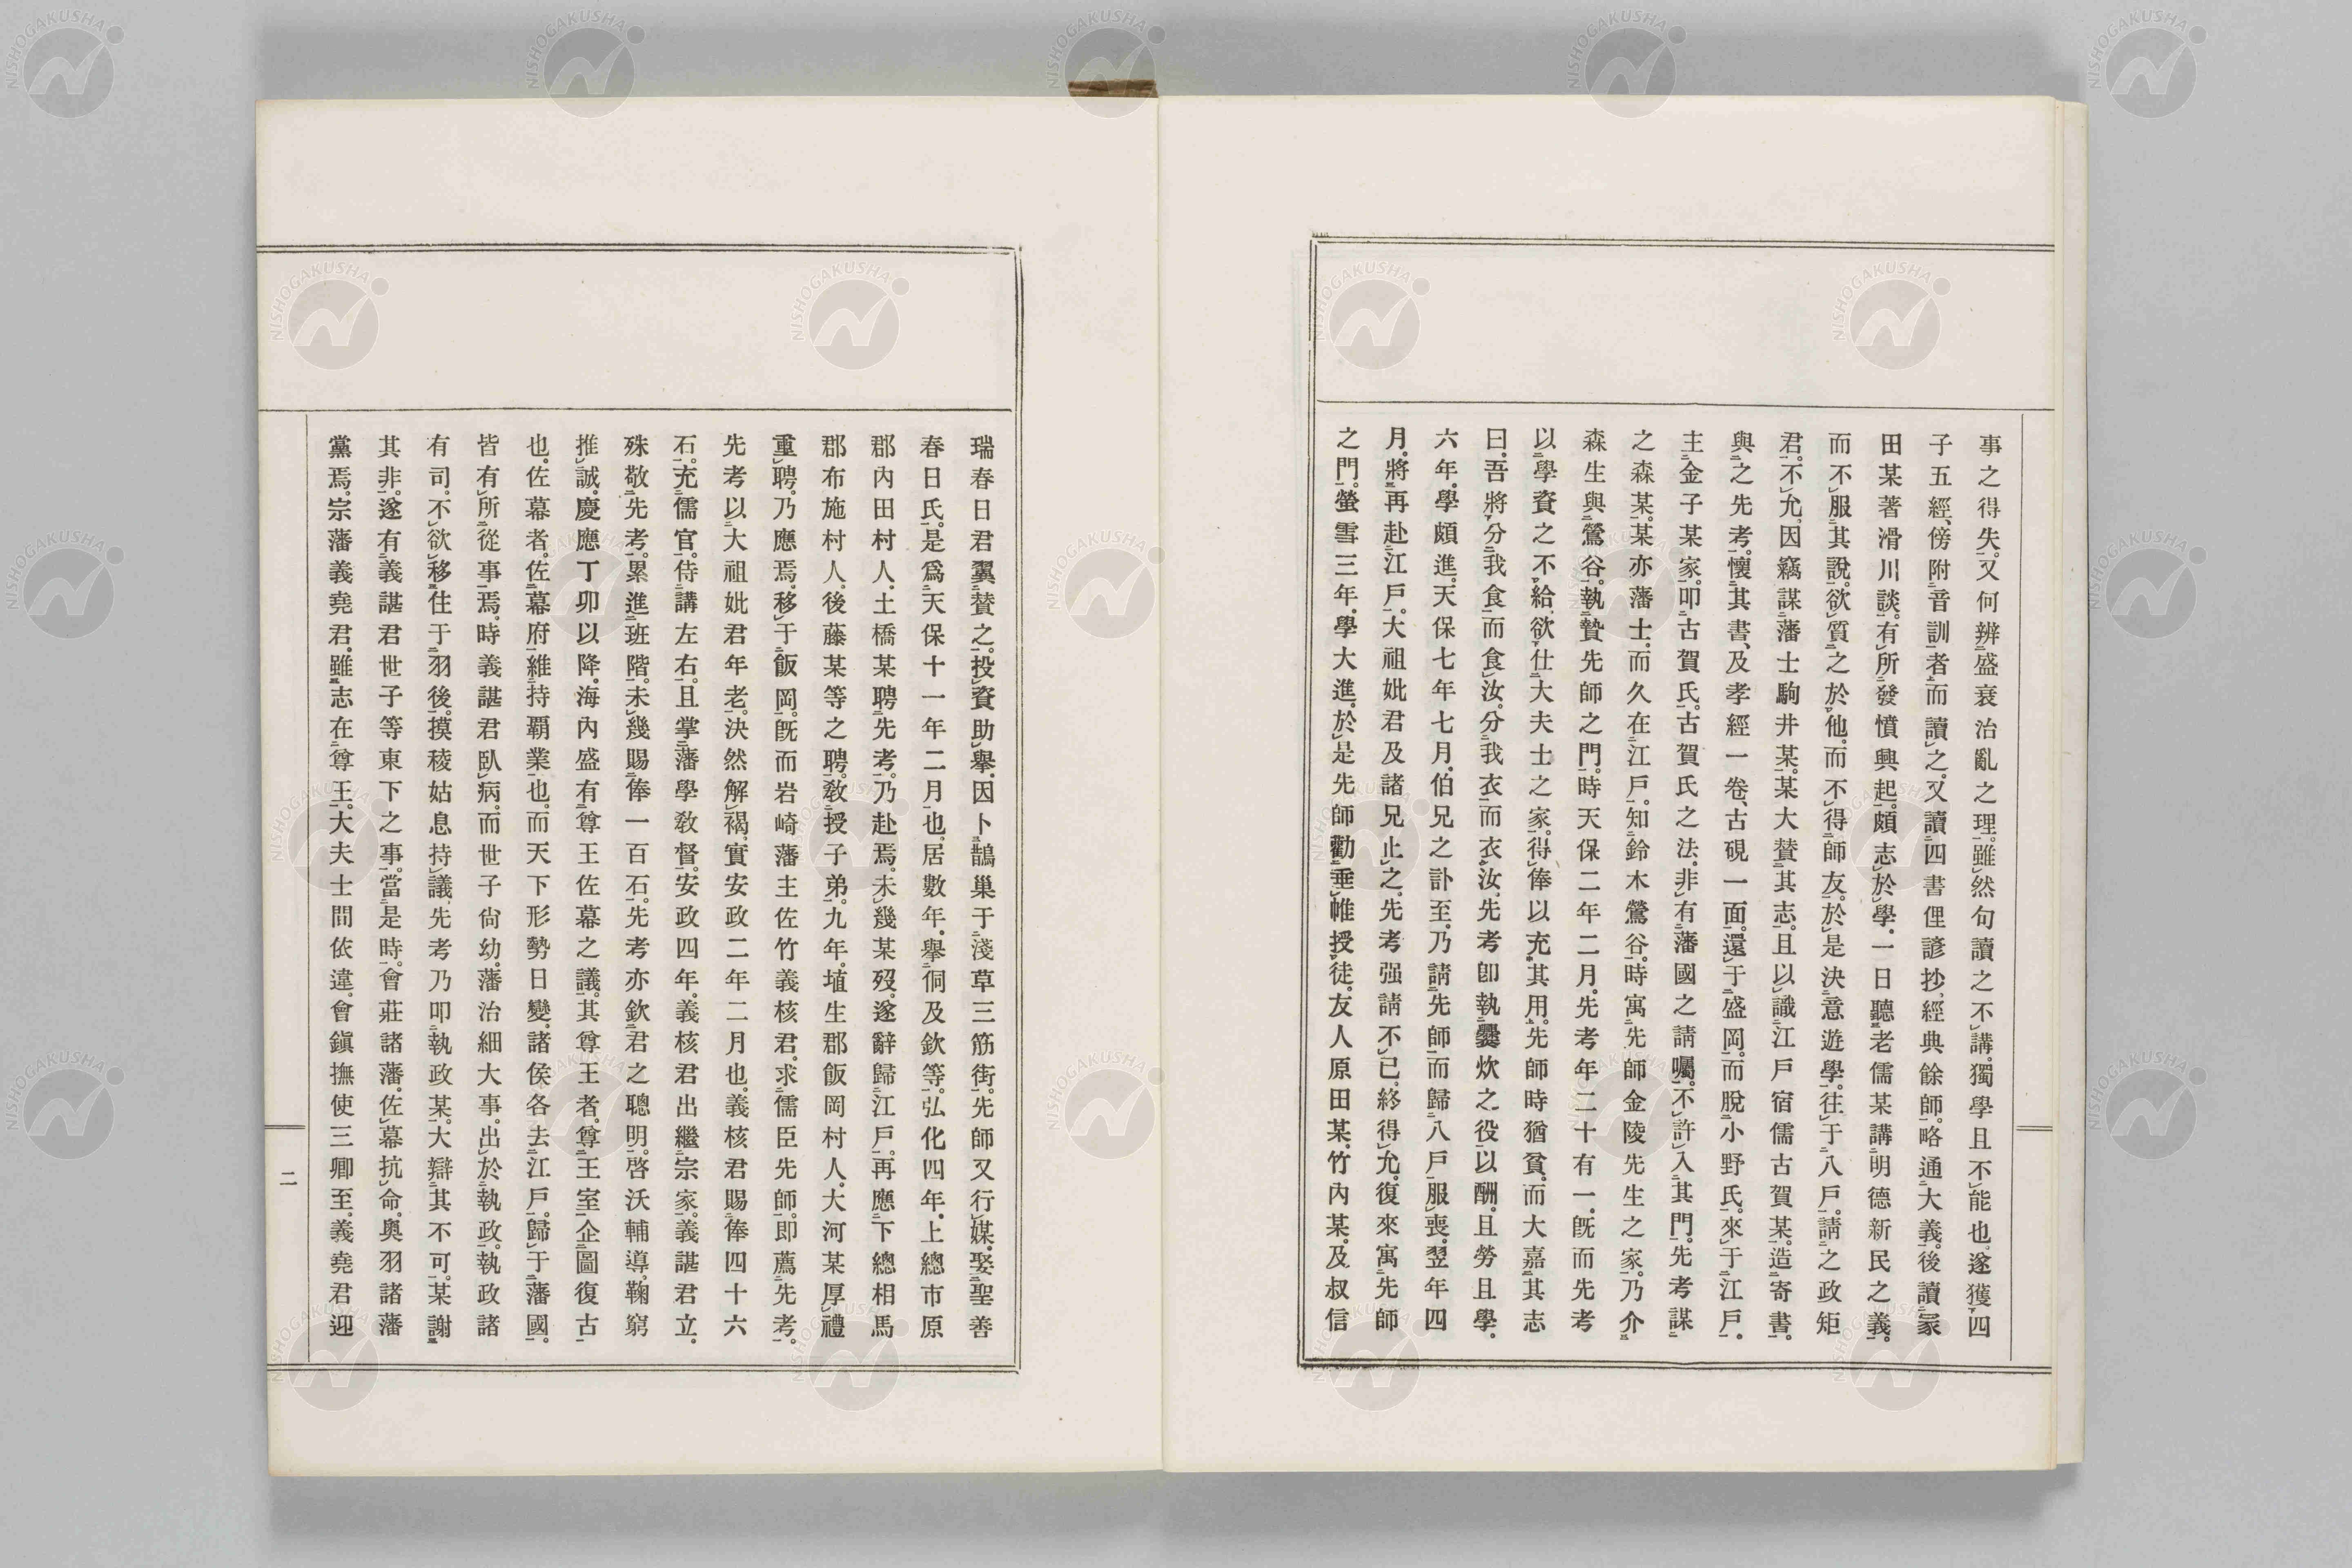 事之得失。又何辨盛衰治亂之理。雖然句讀之不講。獨學且不能也。遂獲四
子五經、傍附音訓者而讀之。又讀四書俚諺抄、經典餘師。略通大義。後讀家
田某著滑川談。有所發憤興起。頗志於學。一日聽老儒某講明德新民之義。
而不服其說。欲質之於他。而不得師友。於是決意遊學。往于八戶。請之政矩
君。不允。因竊謀藩士駒井某。某大贊其志。且以識江戶宿儒古賀某。造寄書。
與之先考。懷其書、及孝經一卷、古硯一面。還于盛岡。而脫小野氏。來于江戶。
主金子某家。叩古賀氏。古賀氏之法。非有藩國之請囑。不許入其門。先考謀
之森某。某亦藩士。而久在江戶。知鈴木鶯谷。時寓先師金陵先生之家。乃介
森生與鶯谷。執贄先師之門。時天保二年二月。先考年二十有一。既而先考
以學資之不給、欲仕大夫士之家。得俸以充其用。先師時猶貧。而大嘉其志
曰。吾將分我食而食汝。分我衣而衣汝。先考卽執爨炊之役以酬。且勞且學。
六年。學頗進。天保七年七月。伯兄之訃至。乃請先師而歸八戶服喪。翌年四
月。將再赴江戶。大祖妣君及諸兄止之。先考强請不已。終得允。復來寓先師
之門。螢雪三年。學大進。於是先師勸垂帷授徒。友人原田某。竹內某。及叔信
瑞春日君翼贊之。投資助擧。因卜鵲巢于淺草三筋街。先師又行媒。娶聖善
春日氏。是爲天保十一年二月也。居數年。擧侗及欽等。弘化四年。上總市原
郡內田村人。土橋某聘先考。乃赴焉。未幾某歿。遂辭歸江戶。再應下總相馬
郡布施村人。後藤某等之聘。敎授子弟。九年。埴生郡飯岡村人。大河某厚禮
重聘。乃應焉。移于飯岡。既而岩崎藩主佐竹義核君。求儒臣先師。卽薦先考。
先考以大祖妣君年老。決然解褐。實安政二年二月也。義核君賜俸四十六
石。充儒官。侍講左右。且掌藩學敎督。安政四年。義核君出繼宗家。義諶君立。
殊敬先考。累進班階。未幾賜俸一百石。先考亦欽君之聰明。啓沃輔導。鞠窮
推誠。慶應丁卯以降。海內盛有尊王佐幕之議。其尊王者。尊王室企圖復古
也。佐幕者。佐幕府維持覇業也。而天下形勢日變。諸侯各去江戶。歸于藩國。
皆有所從事焉。時義諶君臥病。而世子尙幼。藩治細大事。出於執政。執政諸
有司。不欲移住于羽後。摸稜姑息持議。先考乃叩執政某。大辯其不可。某謝
其非。遂有義諶君世子等東下之事。當是時。會莊諸藩。佐幕抗命。奧羽諸藩
黨焉。宗藩義堯君。雖志在尊王。大夫士間依違。會鎭撫使三卿至。義堯君迎
二